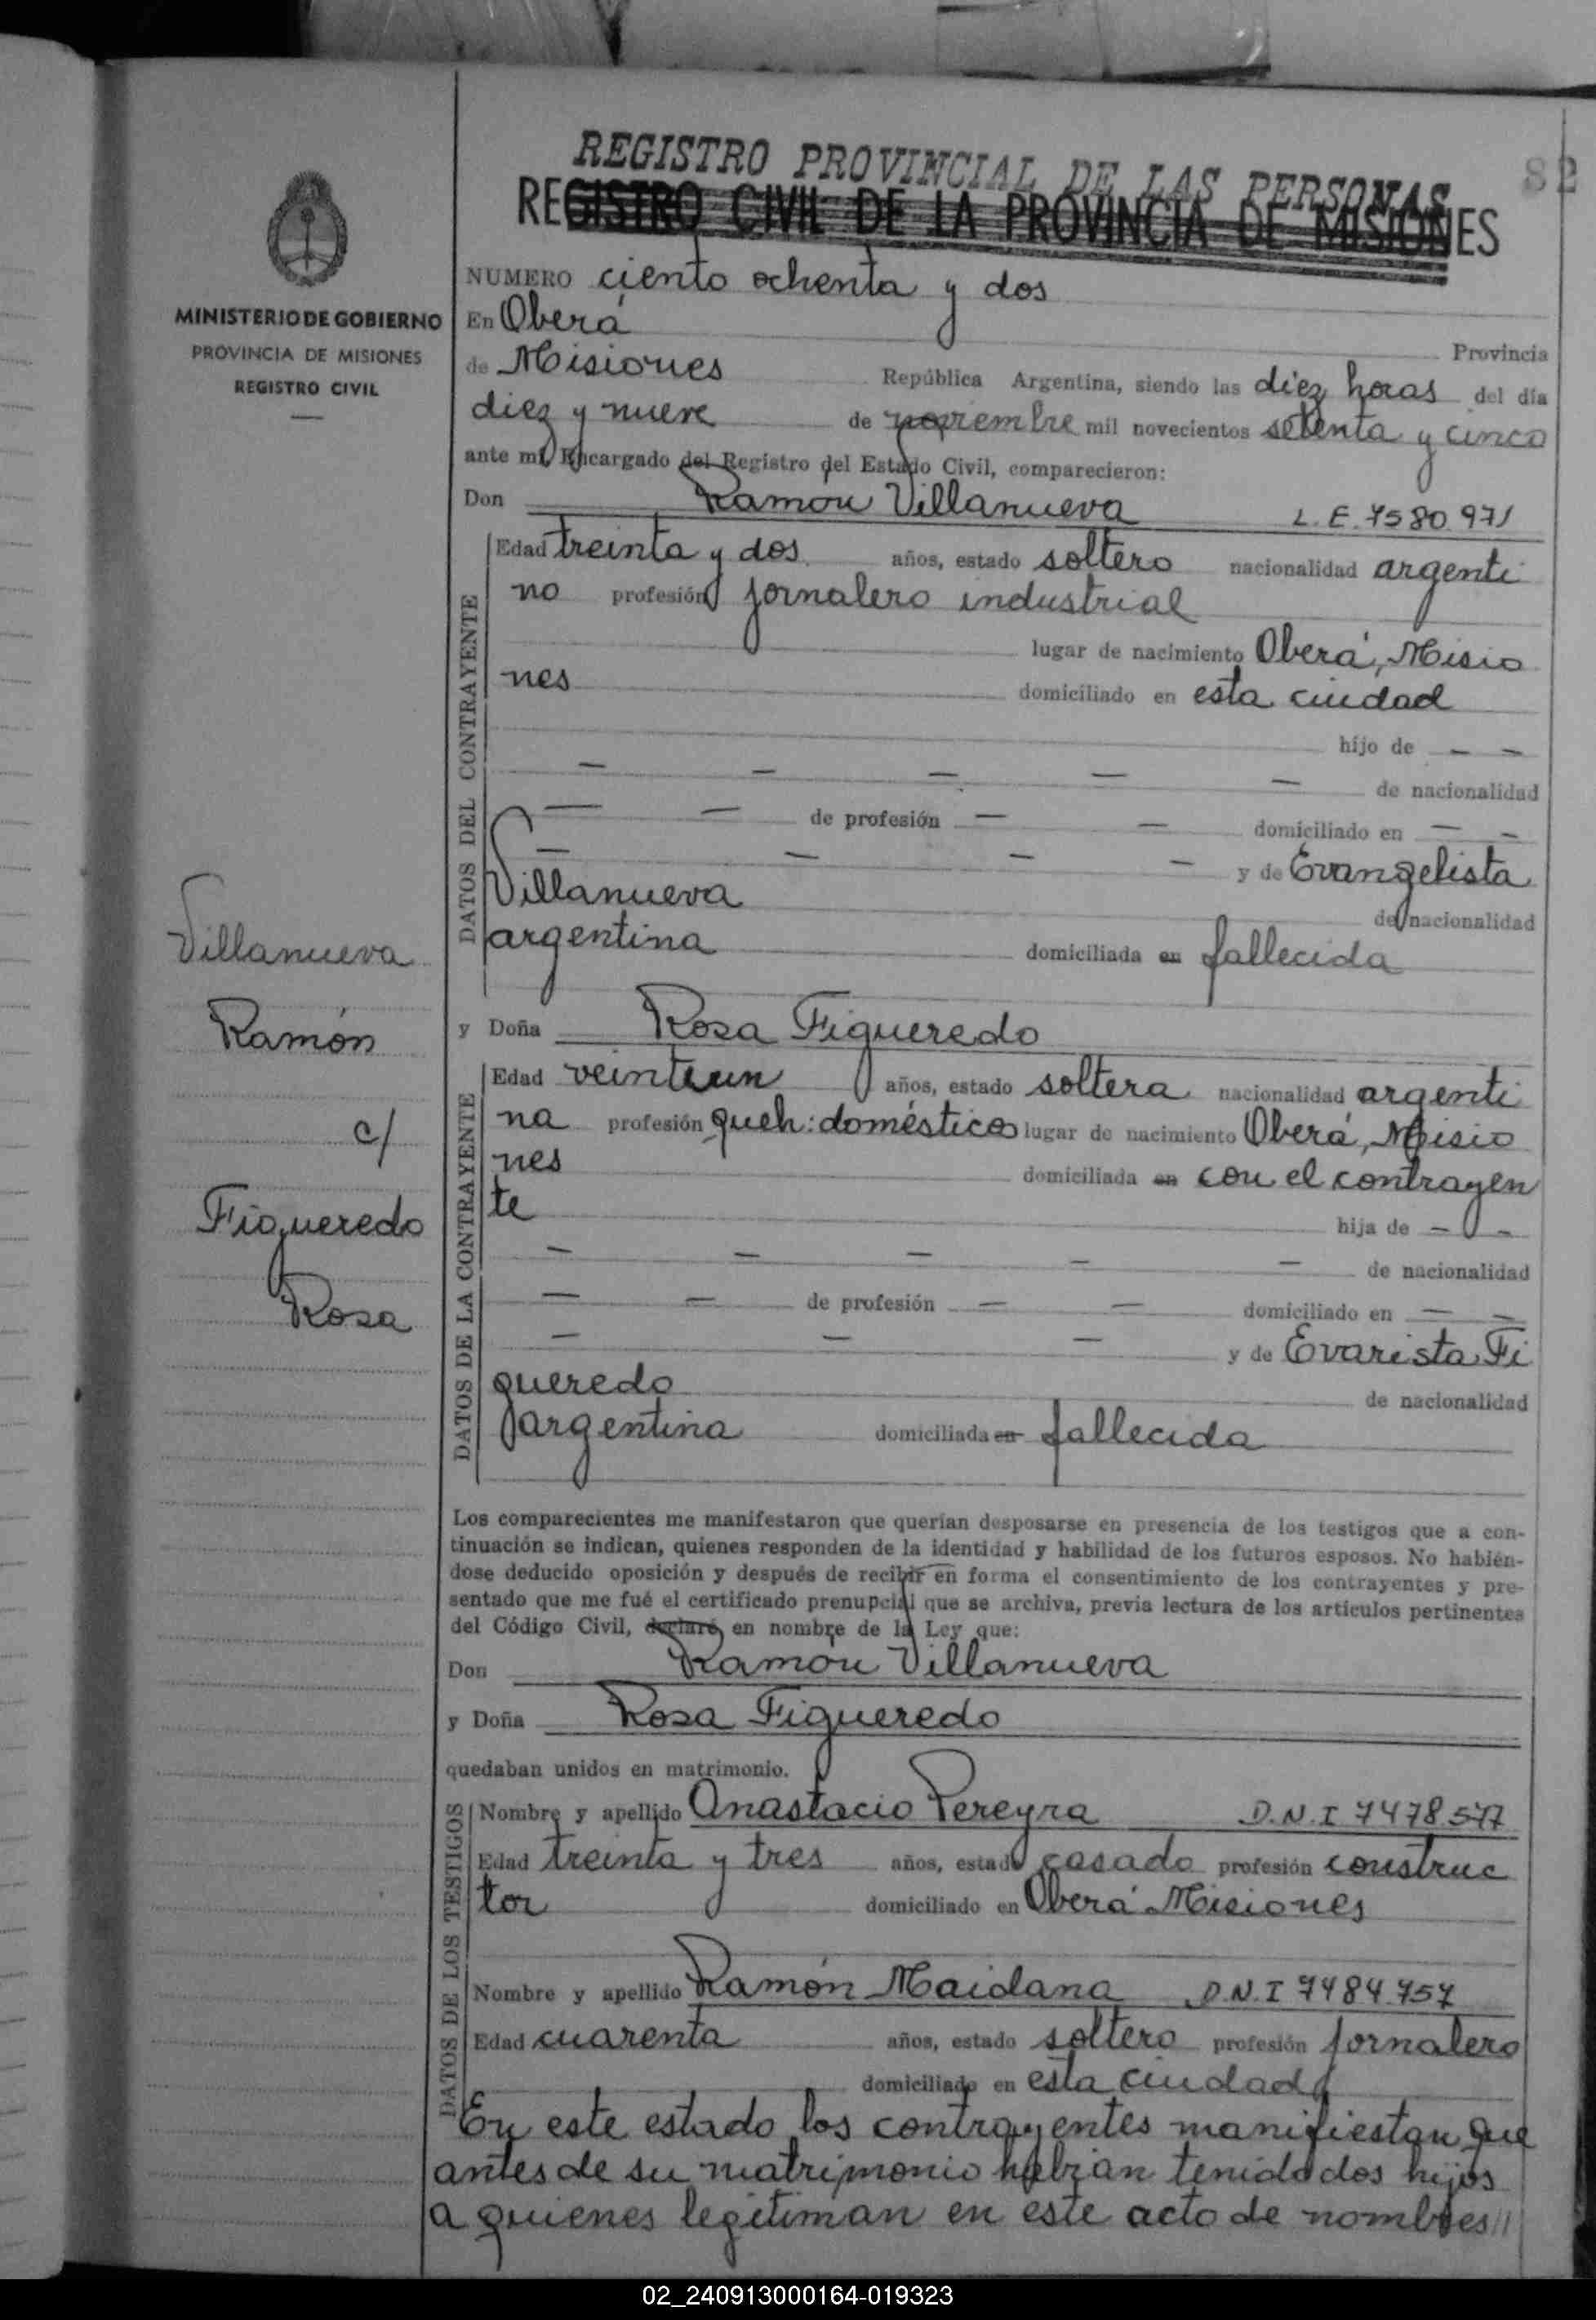 82
REGISTRO PROVINCIAL DE LAS PERSONAS
REGISTRO CIVIL DE LA PROVINCIA DE MISIONES
MINISTERIO DE GOBIERNO
PROVINCIA DE MISIONES
REGISTRO CIVIL
NUMERO ciento ochenta y dos
En Oberá Provincia
de Misiones República Argentina, siendo las diez horas del día
diez y nueve de noviembre mil novecientos setenta y cinco
ante mí, Encargado del Registro del Estado Civil, comparecieron:
Don Ramón Villanueva L.E. 7580.971
DATOS DEL CONTRAYENTE
Edad treinta y dos años, estado soltero nacionalidad argenti
no profesión jornalero industrial
lugar de nacimiento Oberá, Misio
nes domiciliado en esta ciudad
hijo de — —
— — — — — de nacionalidad
— — de profesión — — domiciliado en — —
— — — — y de Evangelista
Villanueva de nacionalidad
argentina domiciliada en fallecida
Villanueva
Ramón
c/
Figueredo
Rosa
y Doña Rosa Figueredo
DATOS DE LA CONTRAYENTE
Edad veintiun años, estado soltera nacionalidad argenti
na profesión queh: domésticos lugar de nacimiento Oberá, Misio
nes domiciliada en con el contrayen
te hija de — —
— — — — — de nacionalidad
— — de profesión — — domiciliado en — —
— — — y de Evarista Fi
gueredo de nacionalidad
argentina domiciliada en fallecida
Los comparecientes me manifestaron que querían desposarse en presencia de los testigos que a con-
tinuación se indican, quienes responden de la identidad y habilidad de los futuros esposos. No habién-
dose deducido oposición y después de recibir en forma el consentimiento de los contrayentes y pre-
sentado que me fué el certificado prenupcial que se archiva, previa lectura de los artículos pertinentes
del Código Civil, declaré en nombre de la Ley que:
Don Ramón Villanueva
y Doña Rosa Figueredo
quedaban unidos en matrimonio.
DATOS DE LOS TESTIGOS
Nombre y apellido Anastacio Pereyra D.N.I 7478.577
Edad treinta y tres años, estado casado profesión construc
tor domiciliado en Oberá Misiones
Nombre y apellido Ramón Maidana D.N.I 7484.757
Edad cuarenta años, estado soltero profesión jornalero
domiciliado en esta ciudad
En este estado los contrayentes manifiestan que
antes de su matrimonio habian tenido dos hijos
a quienes legitiman en este acto de nombres //
02_240913000164-019323